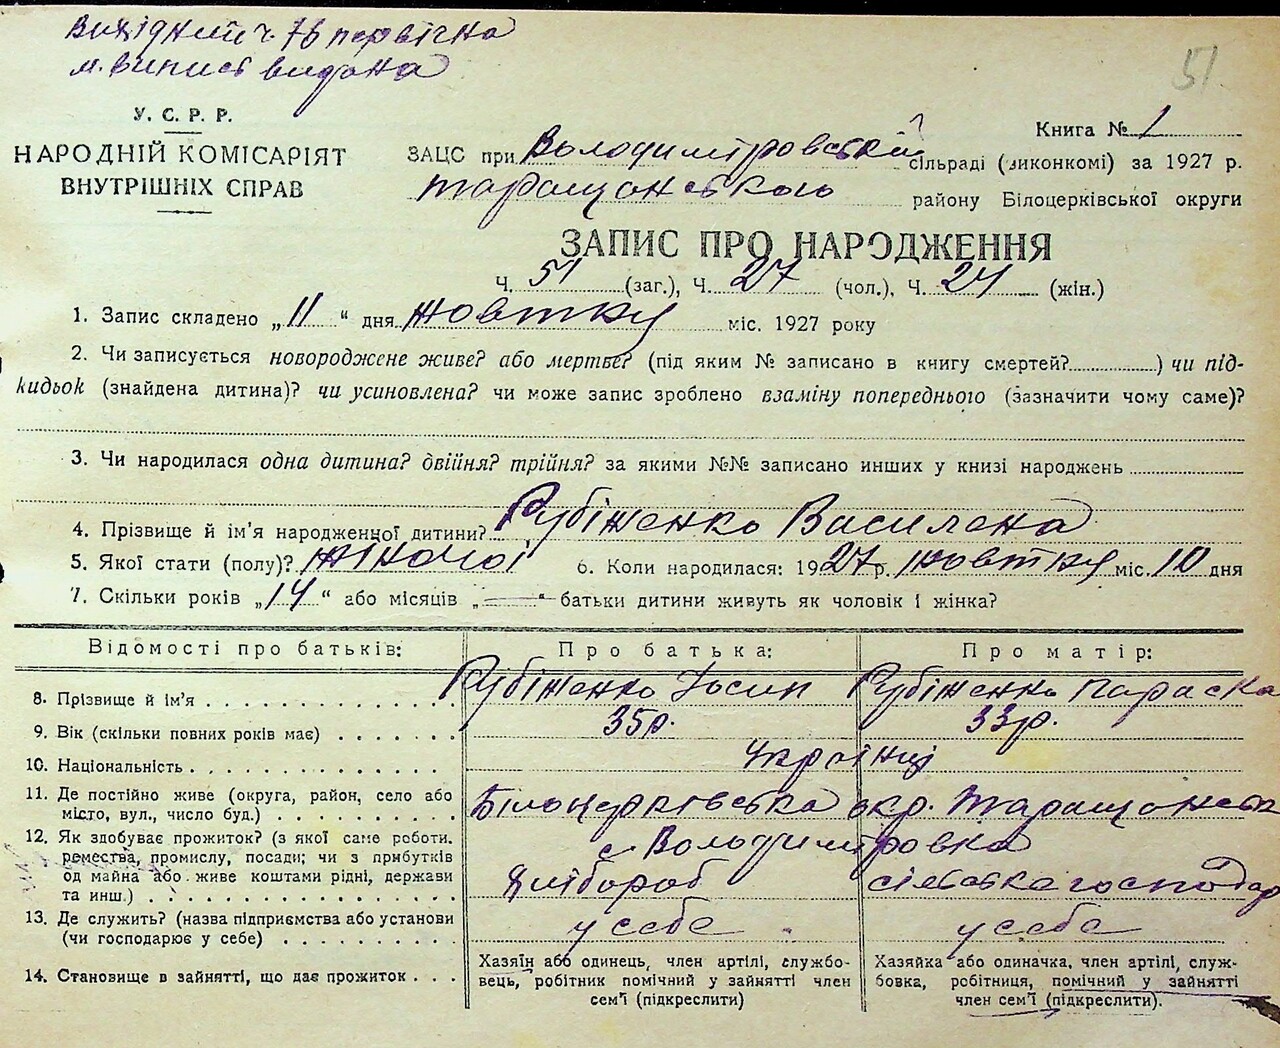 Вихідний ч. 76 первічна
м. випись видана
51
У. С. Р. Р.
НАРОДНІЙ КОМІСАРІЯТ
ВНУТРІШНІХ СПРАВ
Книга № 1
ЗАЦС при Володимтровській сільраді (виконкомі) за 1927 р.
Таращанського району Білоцерківської округи
ЗАПИС ПРО НАРОДЖЕННЯ
Ч. 51 (заг.), Ч. 27 (чол.), Ч. 24 (жін.)
1. Запис складено „11“ дня жовтку міс. 1927 року
2. Чи записується новороджене живе? або мертве? (під яким № записано в книгу смертей?) чи під-
кидьок (знайдена дитина)? чи усиновлена? чи може запис зроблено взаміну попереднього (зазначити чому саме)?
3. Чи народилася одна дитина? двійня? трійня? за якими №№ записано инших у книзі народжень
4. Прізвище й ім'я народженної дитини? Рубіженко Василена
5. Якої стати (полу)? жіночої 6. Коли народилася: 1927 р. жовтку міс. 10 дня
7. Скільки років „14“ або місяців „—“ батьки дитини живуть як чоловік і жінка?
Відомості про батьків: Про батька: Про матір:
8. Прізвище й ім'я Рубіженко Йосип Рубіженко Параска
9. Вік (скільки повних років має) 35р. 33р.
10. Національність Українці
11. Де постійно живе (округа, район, село або Білоцерківська окр. Таращанськ
місто, вул., число буд.) с. Володимтровка
12. Як здобуває прожиток? (з якої саме роботи,
ремества, промислу, посади; чи з прибутків
од майна або живе коштами рідні, держави Хлібороб сільська господар
та инш.)
13. Де служить? (назва підприємства або установи
(чи господарює у себе) у себе у себе
14. Становище в зайнятті, що дає прожиток
Хазяїн або одинець, член артілі, службо-
вець, робітник помічний у зайнятті член
сем'ї (підкреслити)
Хазяйка або одиначка, член артілі, служ-
бовка, робітниця, помічний у зайнятті
член сем'ї (підкреслити).